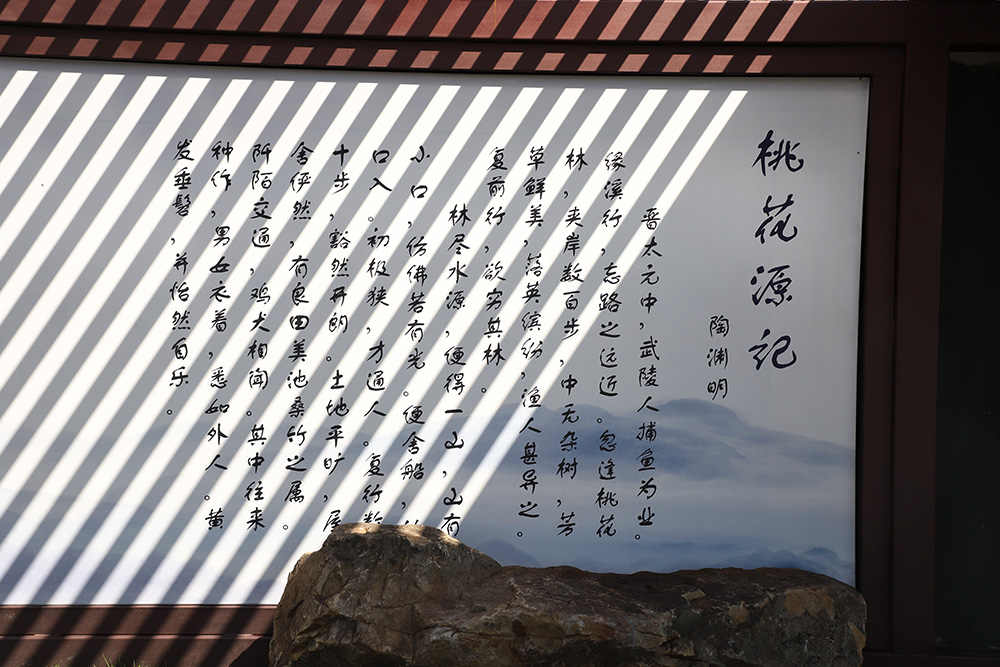 桃花源记
陶渊明
晋太元中，武陵人捕鱼为业。
缘溪行，忘路之远近。忽逢桃花
林，夹岸数百步，中无杂树，芳
草鲜美，落英缤纷，渔人甚异之。
复前行，欲穷其林。
林尽水源，便得一山，山有
小口，仿佛若有光。便舍船，
口入。初极狭，才通人。复行数
十步，豁然开朗。土地平旷，屋
舍俨然，有良田美池桑竹之属。
阡陌交通，鸡犬相闻。其中往来
种作，男女衣着，悉如外人。黄
发垂髫，并怡然自乐。